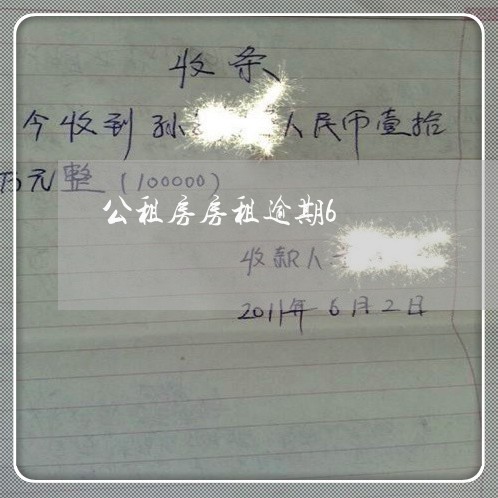 收条
今收到孙 人民币壹拾
万元整(100000)
公租房房租逾期6
收款人
2011年6月2日